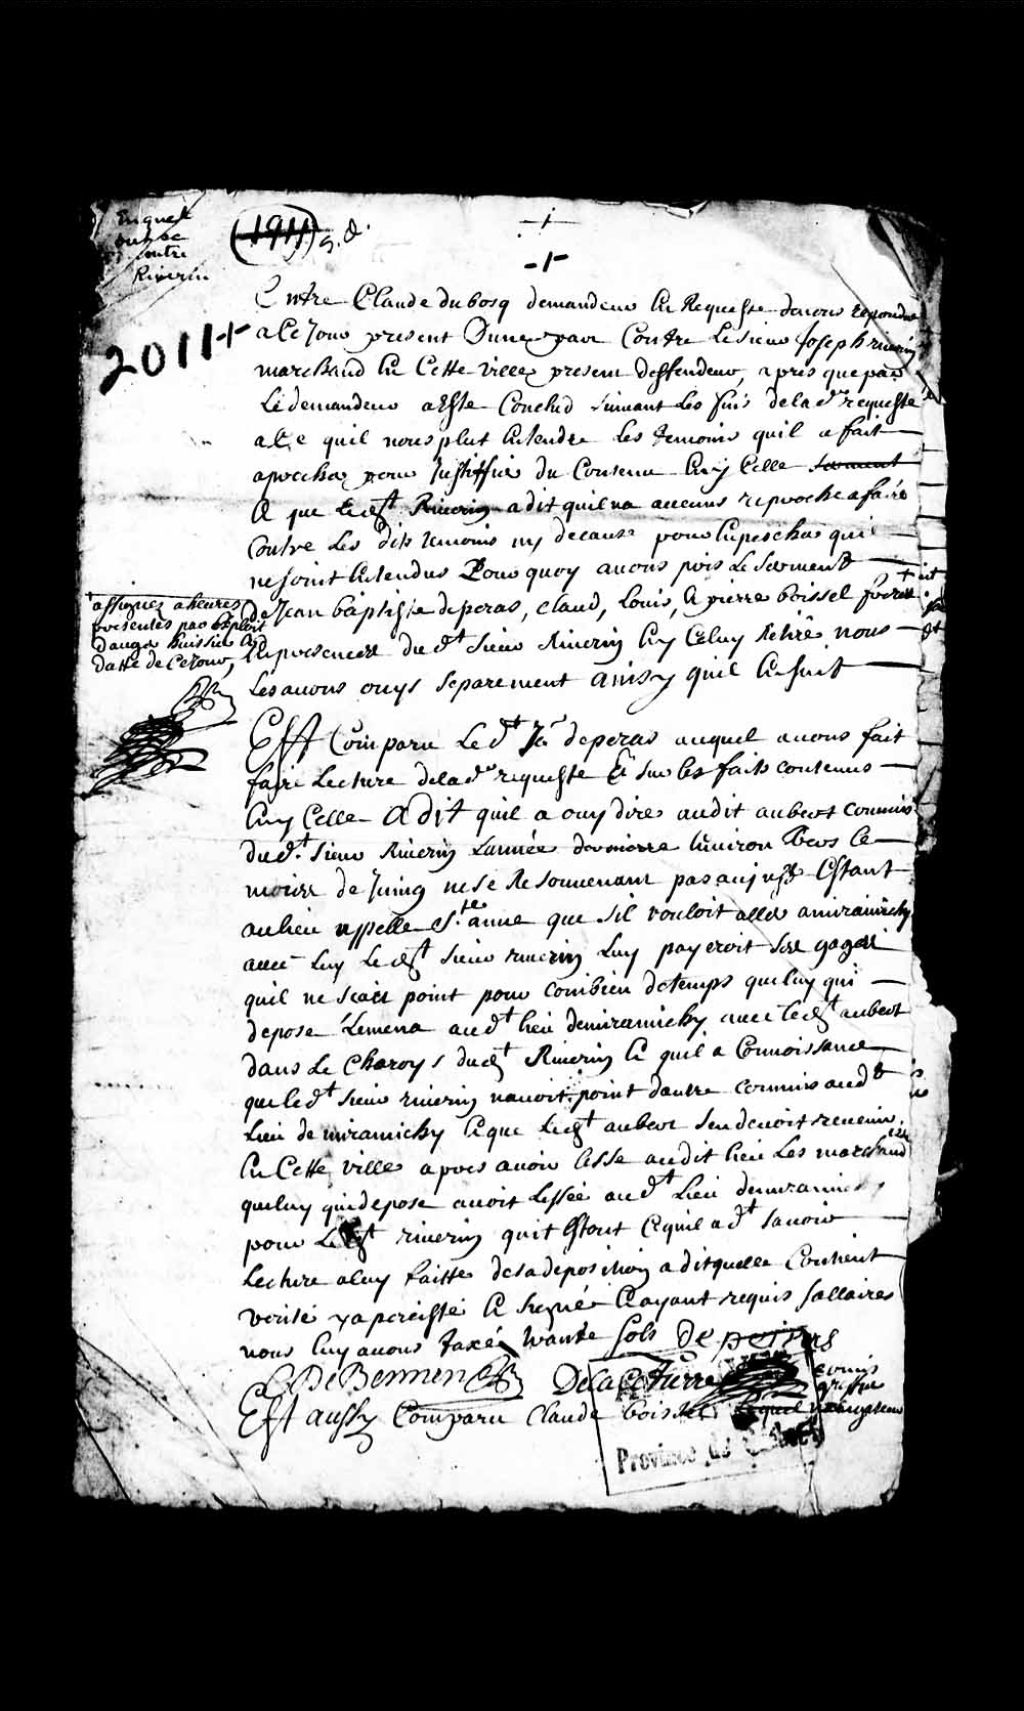 Enque[te]
dubosc
contre
Riverin
(1911) g.d.
-1-
-1-
2011+
Entre Claude dubosq demandeur En Requeste de nous repondue
a Ce Jour present Dune part Contre Le sieur Joseph riverin
marchand En Cette ville present deffendeur, apres que par
Le demandeur a Este Conclud suivant Les fins de la dte requeste
a Ce quil nous plut Entendre Les temoins quil a fait
aprocher pour Justiffier du Contenu En jcelle serment
Et que Ledt Riverin a dit quil na aucuns reproche a faire
Contre Les dits temoins ny de cause pour Empescher quil
ne soint Entendus Pourquoy avons pris Le serment
de Jean baptiste deperas, claud, louis, Et pierre boissel freres +
En presence du dt Sieur Riverin Et Celuy Retiré nous
Les avons ouys separement ainsy quil En suit
+ assignez a heures
presentes par Exploit
dauger huissier En
datte de Ce Jour,
Est Comparu Le dt Jn deperas auquel avons fait
faire Lecture de la dte requeste Et sur les faits contenus
En jcelle A dit quil a ouy dire audit aubert commis
du dt. Sieur Riverin Lannée derniere Environ Vers le
mois de Juing ne se Resouvenant pas au juste Estant
au lieu appellé Ste. anne que sil vouloit aller a miramichy
avec Luy Le dt Sieur riverin Luy payeroit ses gages
quil ne scait point pour combien de temps que luy qui
depose Lemena au dt lieu de miramichy avec Ledt aubert
dans Le charoys dudt Riverin Et quil a Connoissance
que le dt Sieur riverin navoit point dautre commis audt
Lieu de miramichy Et que Ledt aubert sen devoit revenir
En Cette ville apres avoir Lesse audit lieu Les marchandizes
que luy qui depose avoit Lessée au dt Lieu de miramichy
pour Ledt riverin qui Est tout Ce quil a dt savoir
Lecture a luy faitte de sa deposition a dit quelle Contient
verité y a persisté Et signé Et ayant requis sallaires
nous luy avons taxé trante sols deperras
C De Bermen DeLaCetierre commis
greffier
Est aussy Comparu Claude boissel Lequel
Province de Québec